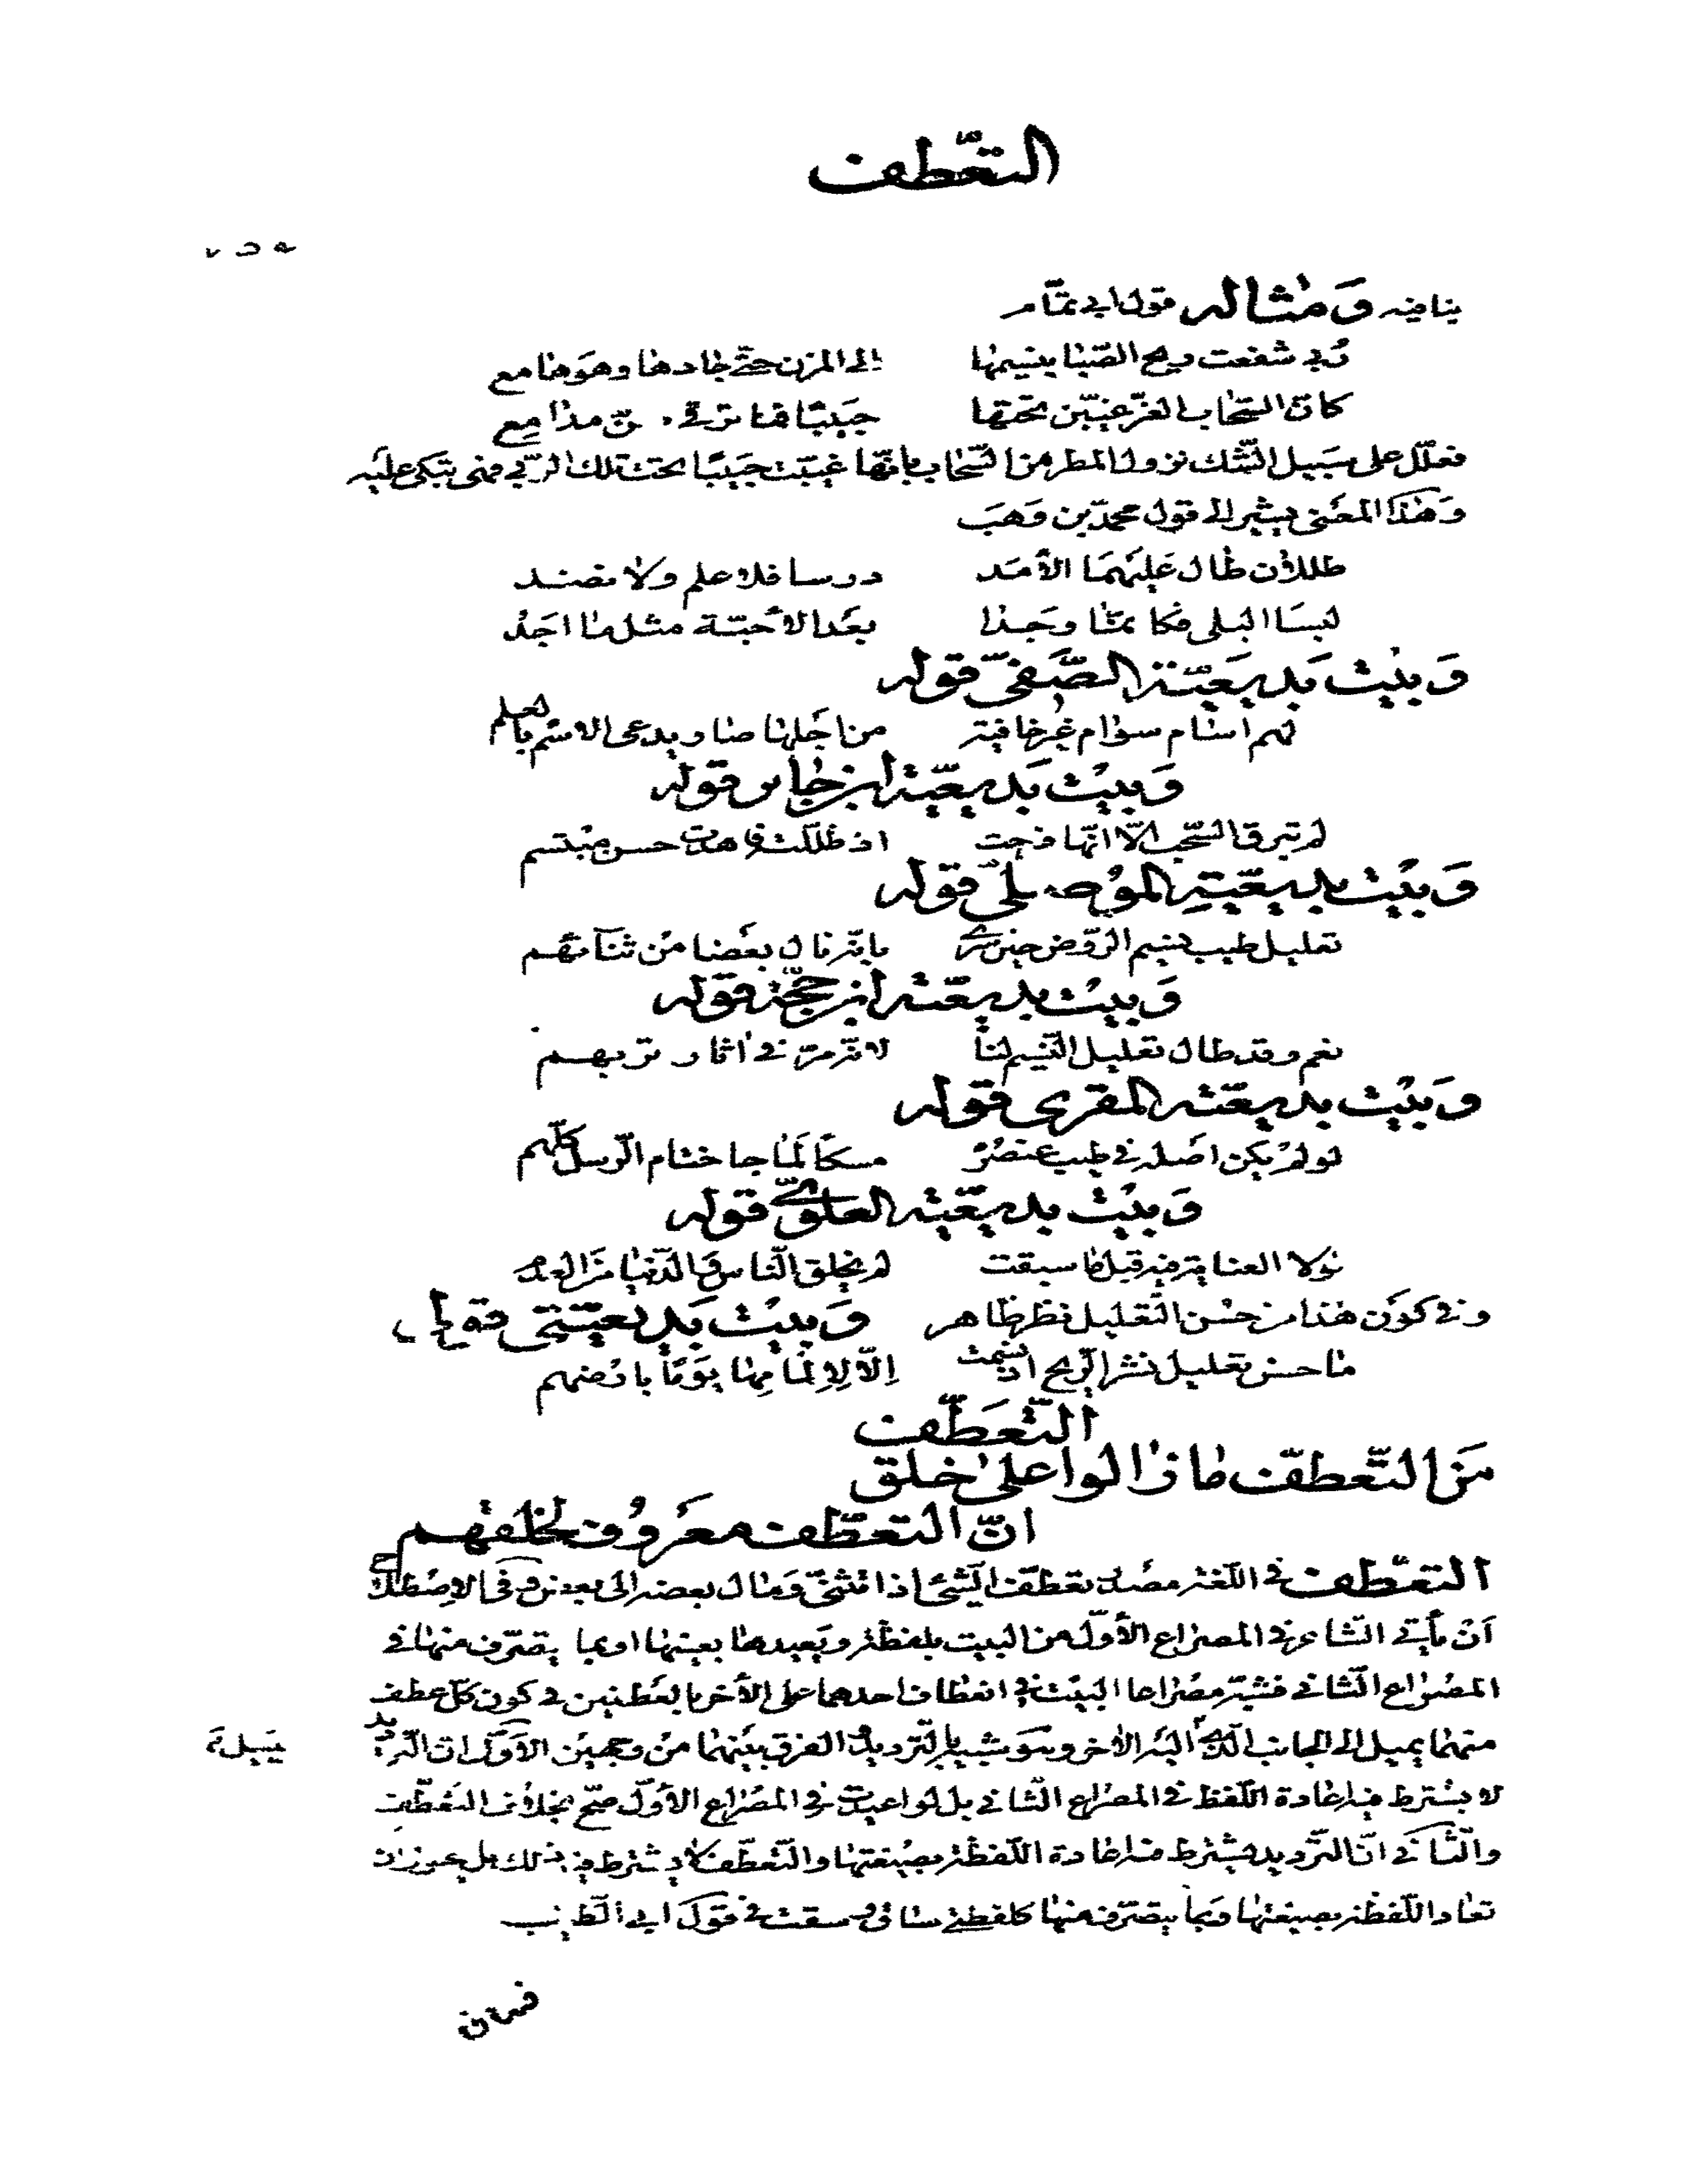 التعّطف
ينافيه وَمثاله قول ابي تمّام
رُبى شفعت ريح الصّبا بنسيمها إلى المزن حتّى جادها وهو هامع
كانّ السّحاب الغرّ غيّبن تحتها حَبيبًا فما ترقى لهنّ مدامِع
فعلّل على سَبيل الشّك نزول المطر من السّحاب بانّها غيّبت حَبيبًا تحت تلك الرّبى فهى تبكى عليه
وَهذا المعنى يشير الى قول محمّد بن وَهَب
طللان طال عَليهمَا الأمَد درسا فلا علم ولا نضد
لبسَا البلى فكانمّا وجَدا بعَد الأحبّة مثل ما اجَدُ
وَبيْت بَديعَيّة الصّفىّ قوله
لهم اسام سوام غير خافية من اجَلها صار يدعى الاسْم بالعلم
وَبيْت بَديعيّة ابن جابر قوله
لم تبرق السّحب الّا انّها فرحت اذ ظللته فابدت حسن مبتسم
وَبيْت بديعيّةِ الموْصلىّ قوله
تعليل طيب نسيم الرّوض حين سرى بانّه نال بعَضا منْ ثنآئهم
وَبيْت بديعيّته ابن حجّة قوله
نعم وقد طال تعليل النّسيم لنا لانّه مرّ في اثار تربهم
وَبيْت بديعيّته المقرى قوله
لو لم يكن اصَله في طيب عنصرُه مسكًا لَما جا ختام الرّسل كلّهم
وَبيْت بديعيّته العلوىّ قوله
لولا العناية فيه قبل ما سبقت لم يخلق النّاس وَالدّنيا منَ العدم
وفي كوَن هذا من حسْن التّعليل نظر ظاهر وَبيْت بَديعيّتى قولى
ما حسن تعليل نشر الرّيح اذ نسمت إلّا لِالمامِها يوَمًا بارضهم
التّعَطّف
منَ التّعطّف ما زالوا على خلق
انّ التعطّف معَروُف لخلقهم
التعطّف في اللّغة مصْدر تعَطّف الشّئ اذا تثنىّ وَمال بعضه الى بعض وفى الاِصْطلاح
اَنْ يأتى الشّاعر في المصراع الأوّل من البيت بلفظة ويَعيدها بعينها او بما يتصّرف منها في
المصْراع الثّاني فشبّه مصْراعا البيْت في انعَطاف احدهما على الأخر بالعَطفين في كون كلّ عطف
منهما يميل الى الجانب الّذي يميل اليْه الأخر وهَوَ شبيه بالتّرديد الفرق بيَنهما منْ وجهين الأوَّل انّ التّرديد
لا يشْترط فيه اعادة اللّفظ في المصْراع الثّاني بل لو اعيدت في المصْراع الأوّل صحّ بخلاف التّعطّف
والثّاني انّ التّرديد يشترط فيه اعادة اللّفظة بصيْغتها والتّعطّف لا يشترط فيه ذلك بل يجوز ان
تعاد اللّفظة بصيغتها وَبما يتصّرف منها كلفظة ساق وسقت في قوَل ابي الطّيب